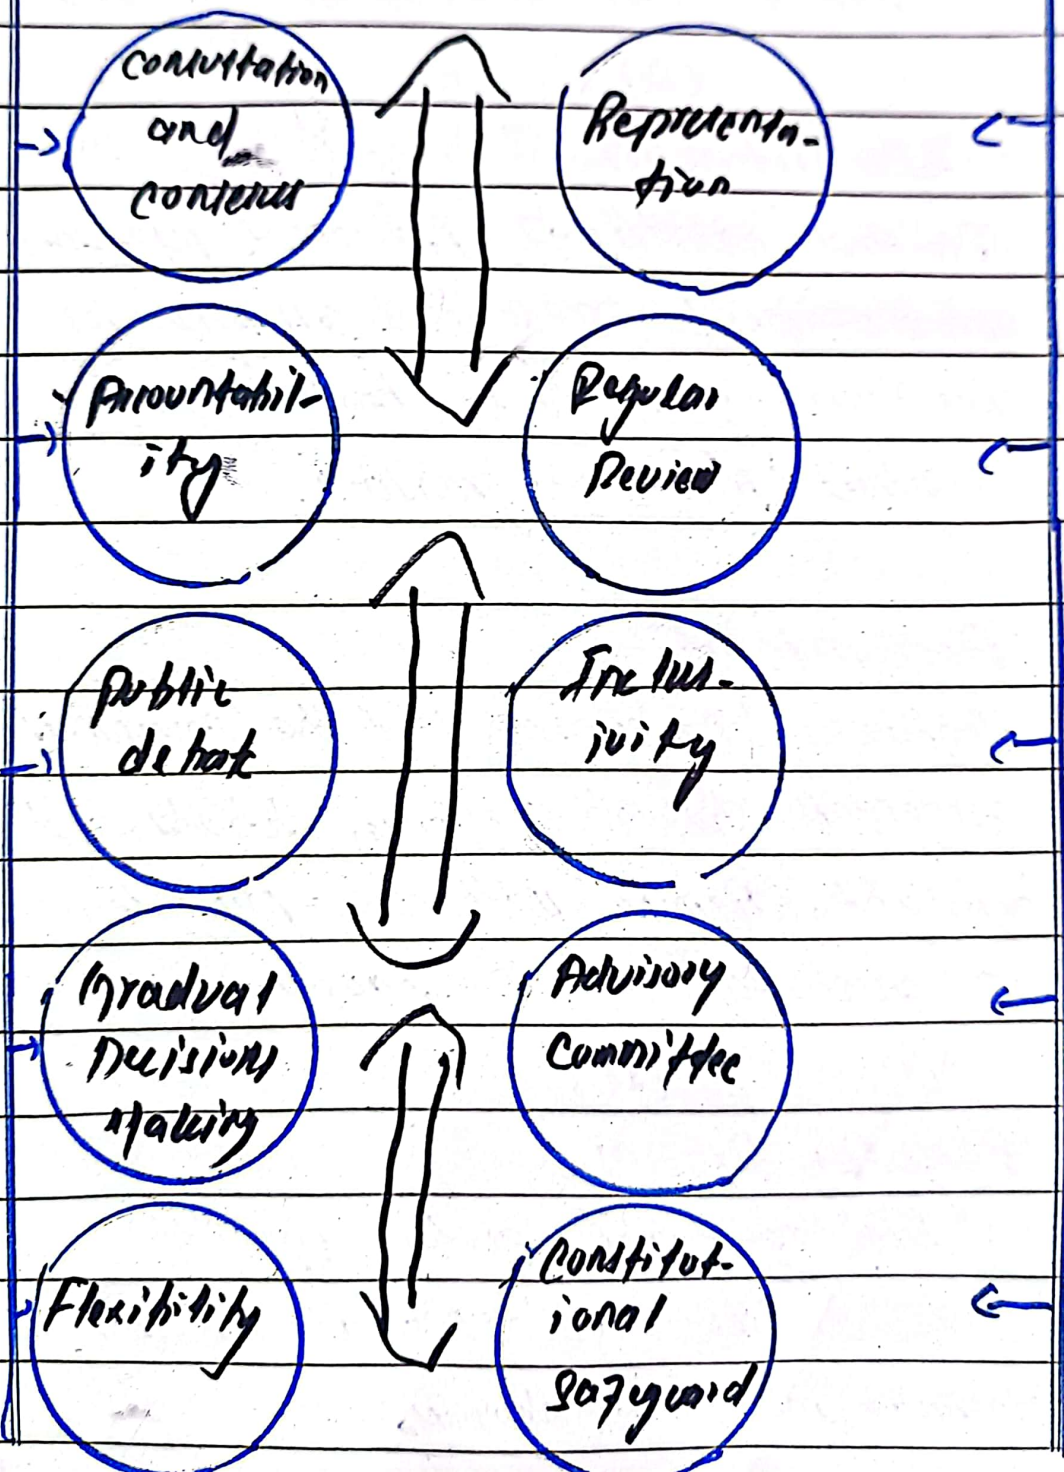 Consultation
and
consensus
Representa-
tion
Accountabil-
ity
Regular
Review
Public
debate
Inclus-
ivity
Gradual
Decisions
Making
Advisory
Committee
Flexibility
Constitut-
ional
safeguard